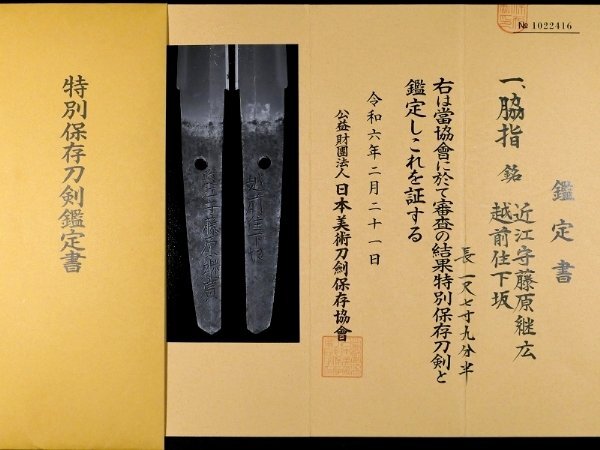 特別保存刀剣鑑定書
№ 1022416
鑑定書
一、脇指 銘 近江守藤原継広
越前住下坂
長一尺七寸九分半
右は當協會に於て審査の結果特別保存刀剣と
鑑定しこれを証する
令和六年二月二十一日
公益財團法人 日本美術刀劍保存協會
越前住下坂